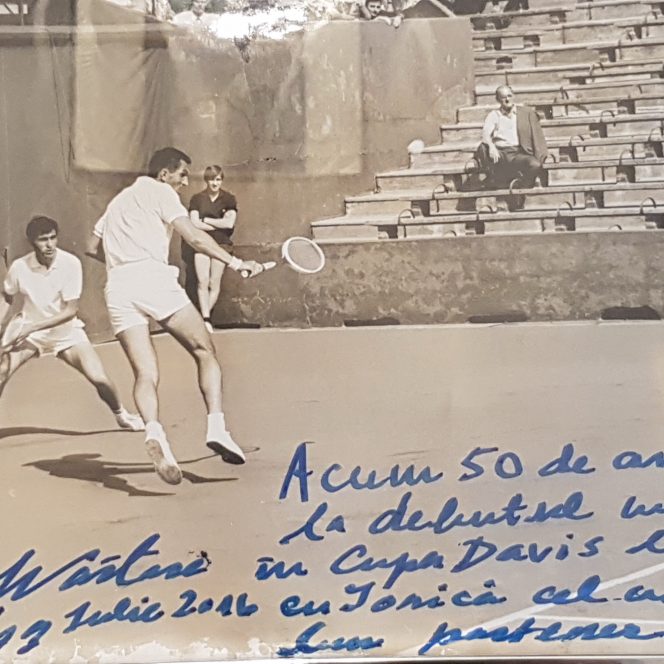 Acum 50 de an
la debutul m
în Cupa Davis
Năstase
13 Iulie 2016 cu Țiriac cel
bun partener